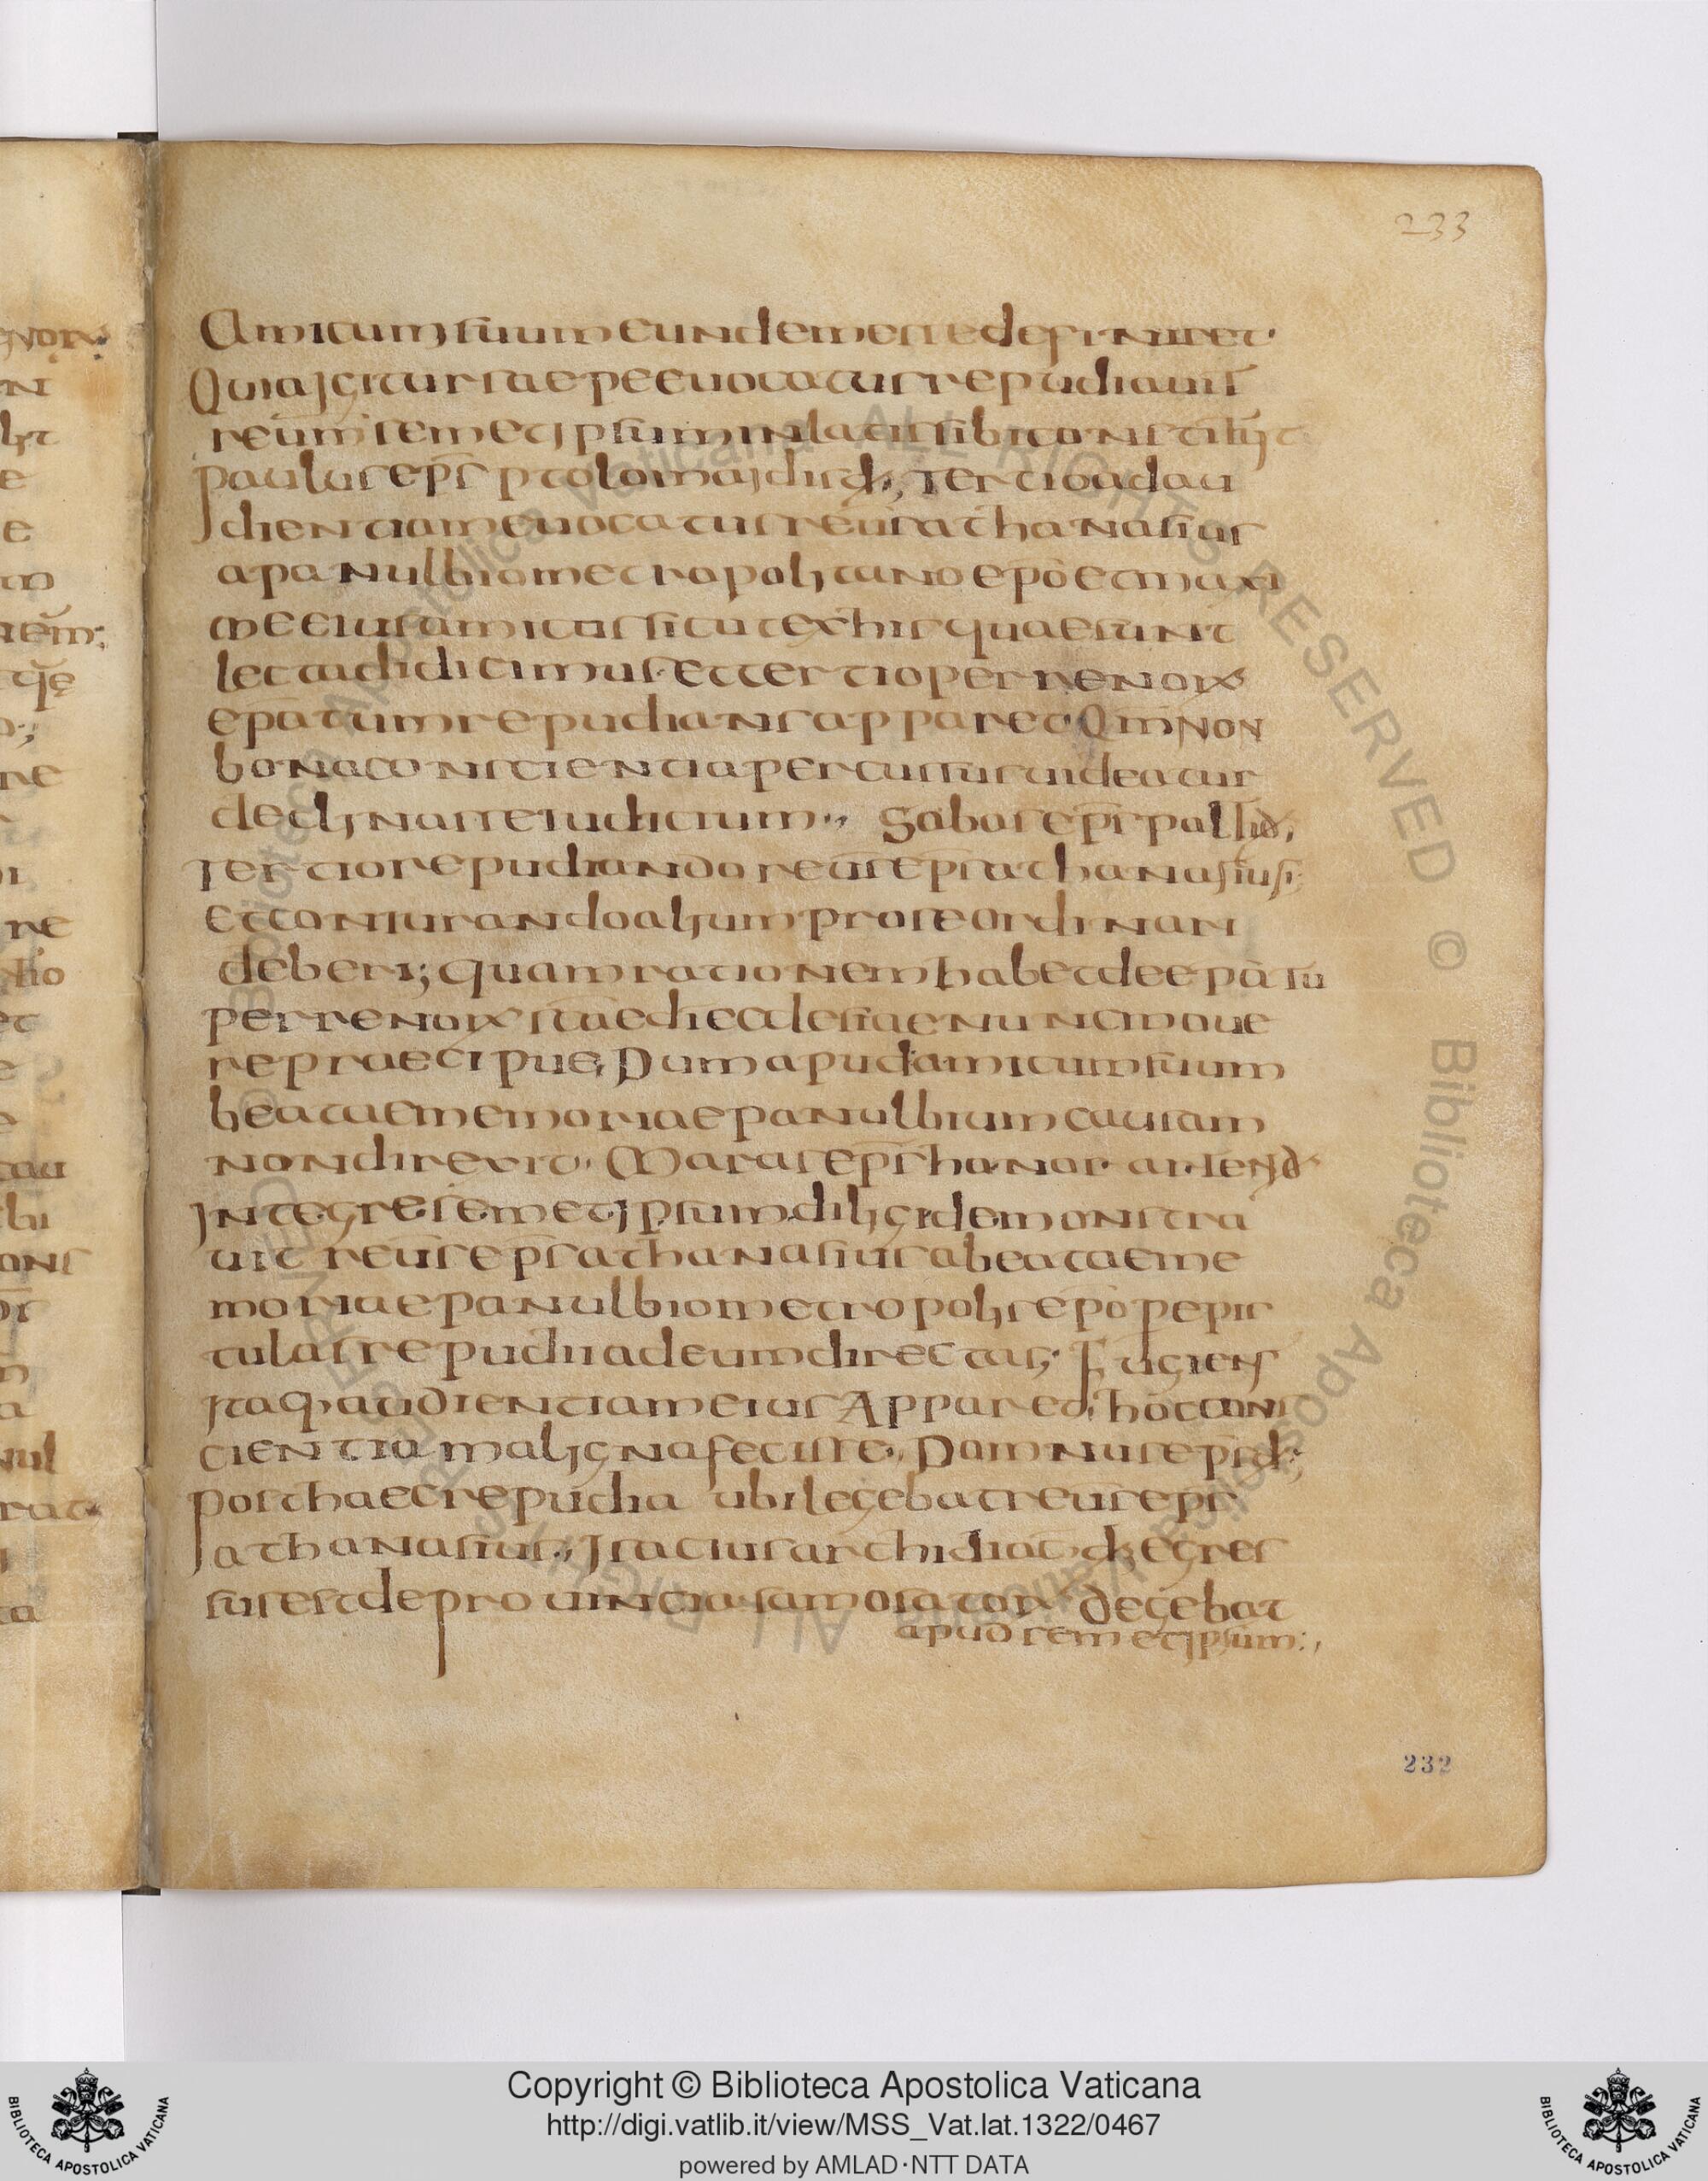 233
Amicum suum eundem esse definiret·
Quia igitur saepe euocatus repudiauit
reum semetipsum in latis sibi constituit
paulus epīs ptolomaidis d̄; Tertio ad au
dientiam euocatus reūs athanasius
a panulbio metropolitano epō et maxi
me eius amicus sicut ex his quae sunt
lecta didicimus· et tertio per renōr
epatum repudians apparet Qm̄ non
bona conscientia percussus uideatur
declinasse iudicium·, Sabas epīs palsid;
Tertio repudiando reūs epīs athanasius;
et coniurando alium pro se ordinari
deberi; quam rationem habet de epātu
perrenor scae di ecclesiae nunc moue
re praecipue, Dum apud amicum suum
beatae memoriae panulbium causam
non direxit· Maras epīs hanor· arsend·
Integre semetipsum diligi demonstra
uit reūs epīs athanasius a beatae me
moriae panulbio metropolis epō pepis
tulas repudii ad eum directas; Fugiens
itaq· audientiam eius Apparet, hoc cons
cientia maligna fecisse·, Domnus epīs d̄;
post haec repudia ubi legebat reūs epīs
athanasius·, Isacius archidiac d̄; egres
sus est de prouincia samosator degebat
apud semetipsum:,
232
Copyright © Biblioteca Apostolica Vaticana
http://digi.vatlib.it/view/MSS_Vat.lat.1322/0467
powered by AMLAD·NTT DATA
BIBLIOTECA APOSTOLICA VATICANA
BIBLIOTECA APOSTOLICA VATICANA